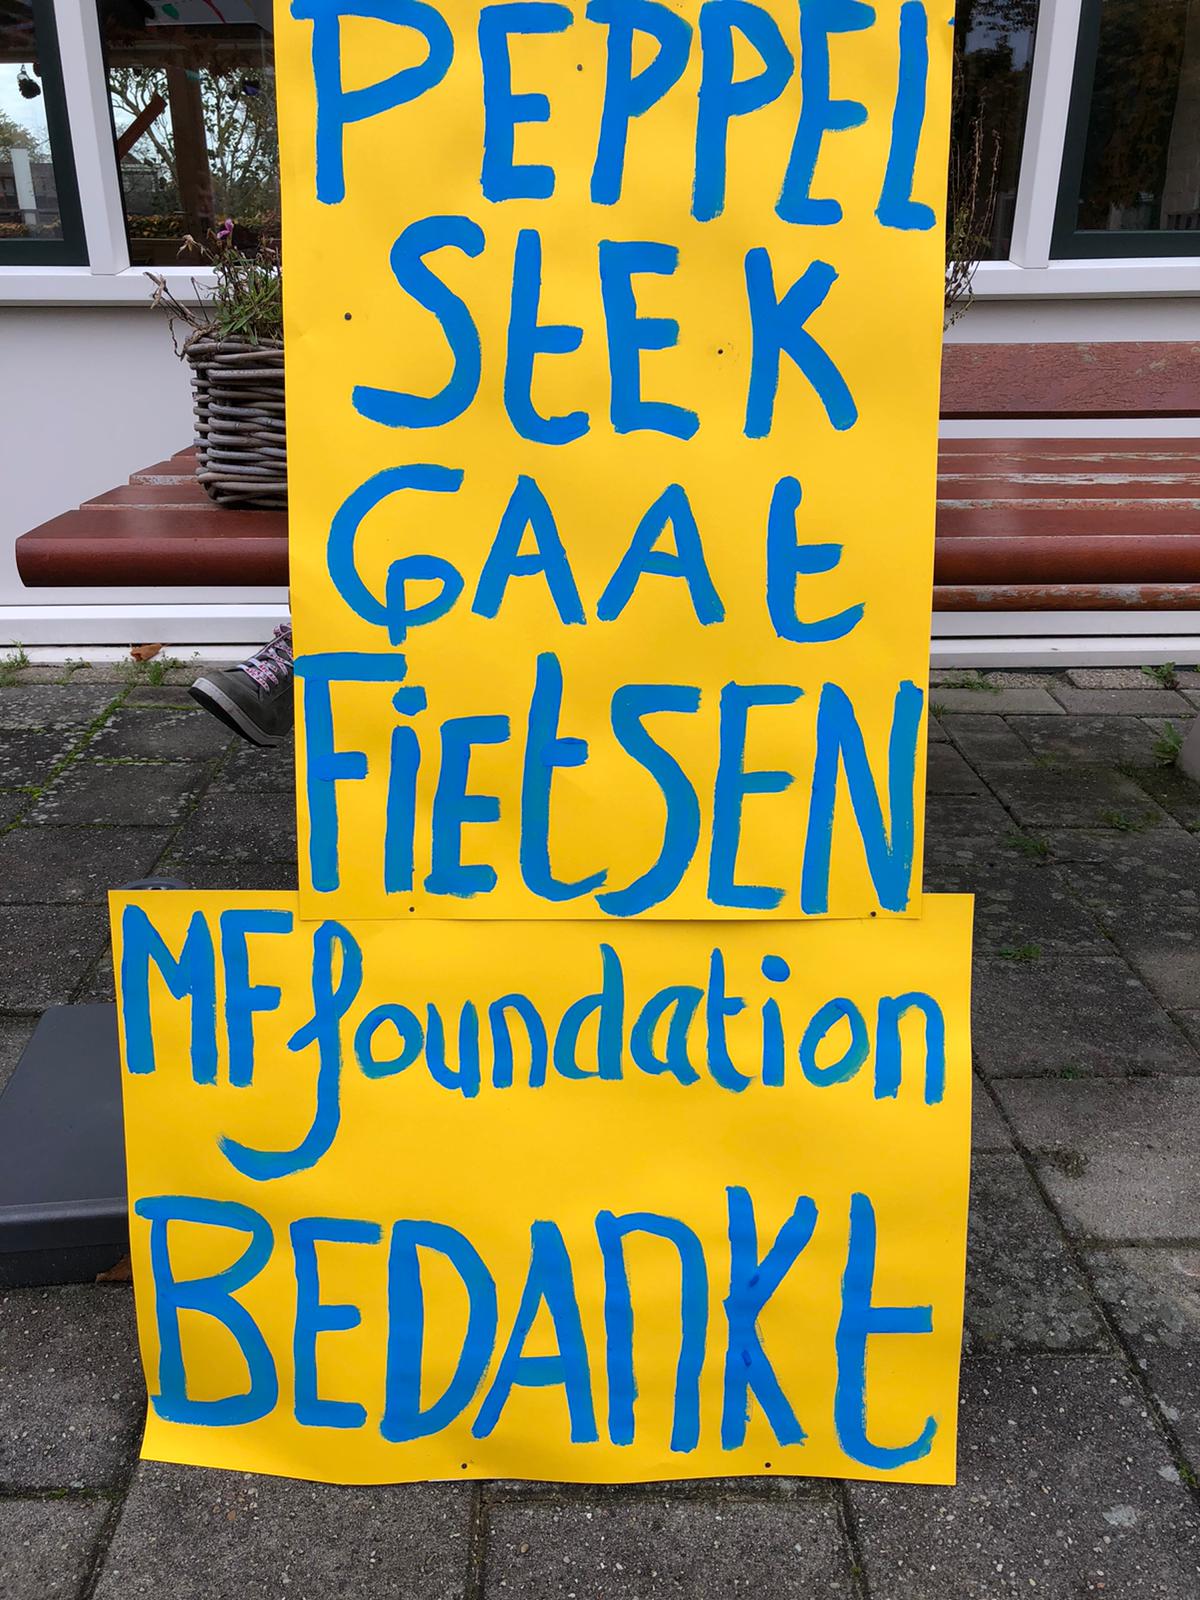 PEPPEL
StEK
GAAt
FiEtSEN
MFfoundation
BEDAnKt